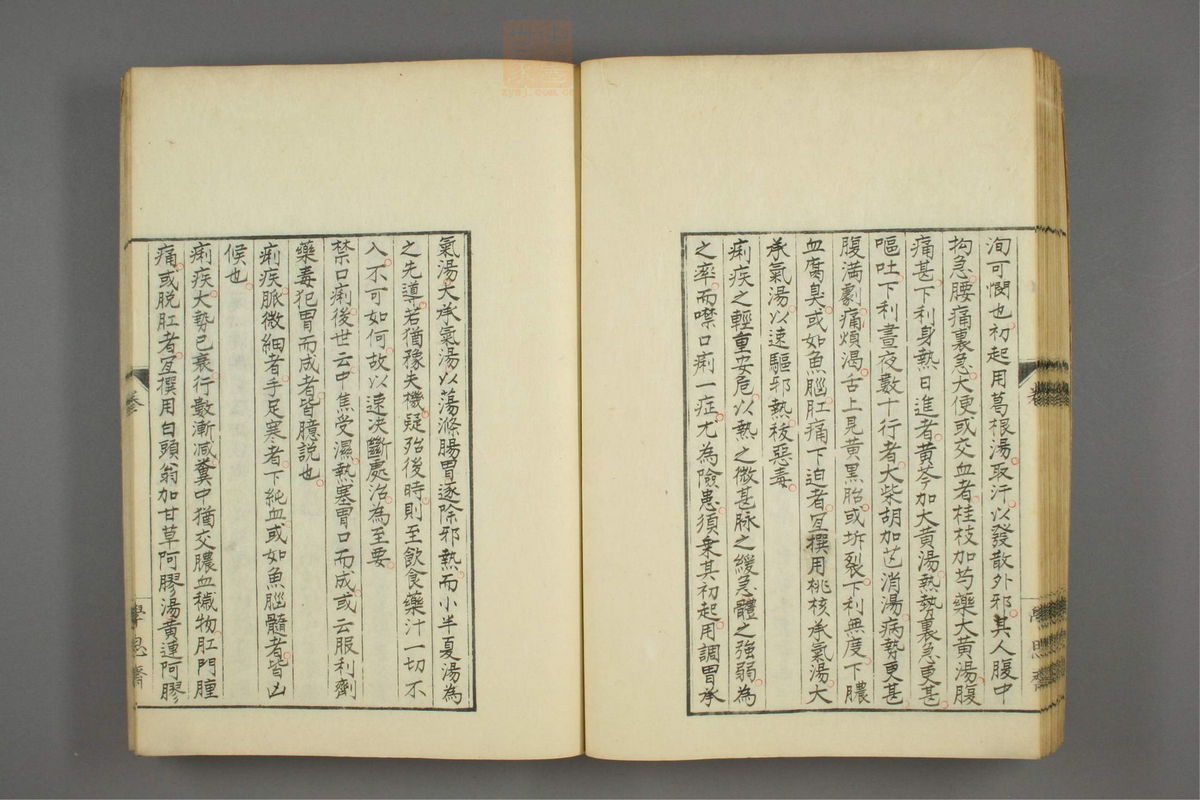 洵可憫也初起用葛根湯取汗以發散外邪其人腹中
拘急腰痛裏急大便或交血者桂枝加芍藥大黃湯腹
痛甚下利身熱日進者黃芩加大黃湯熱勢裏急更甚
嘔吐下利晝夜數十行者大柴胡加芒消湯病勢更甚
腹滿劇痛煩渴舌上見黃黑胎或坼裂下利無度下膿
血腐臭或如魚腦肛痛下迫者宜撰用桃核承氣湯大
承氣湯以速驅邪熱祓惡毒
痢疾之輕重安危以熱之微甚脉之緩急體之強弱為
之率而噤口痢一症尤為險患須乗其初起用調胃承
氣湯大承氣湯以蕩滌腸胃逐除邪熱而小半夏湯為
之先導若猶豫失機疑殆後時則至飲食藥汁一切不
入不可如何故以速决斷處治為至要
禁口痢後世云中焦受濕熱塞胃口而成或云服利劑
藥毒犯胃而成者皆臆説也
痢疾脈微細者手足寒者下純血或如魚腦髓者皆凶
候也
痢疾大勢已衰行數漸減糞中猶交膿血穢物肛門腫
痛或脱肛者宜撰用白頭翁加甘草阿膠湯黃連阿膠
卷
學思齋